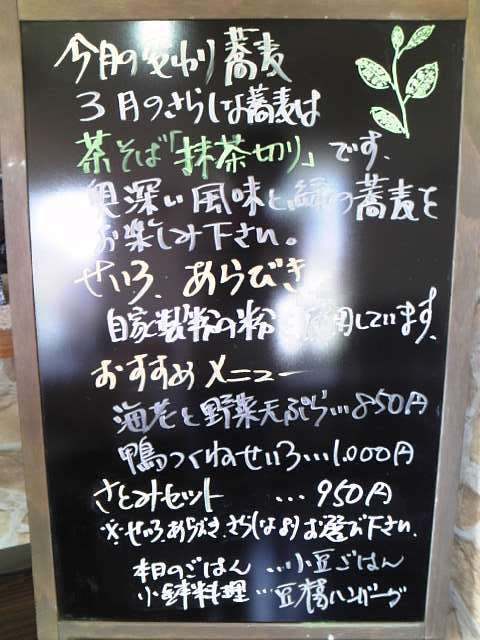 今月の変わり蕎麦
3月のさらしな蕎麦は
茶そば「抹茶切り」です、
奥深い風味と緑の蕎麦を
お楽しみ下さい。
せいろ、あらびき
自家製粉の粉を使用しています、
おすすめメニュー
海老と野菜天ぷら…850円
鴨つくねせいろ…1,000円
さとみセット …950円
※せいろ、あらびき、さらしなよりお選び下さい、
本日のごはん …小豆ごはん
小鉢料理 …豆腐ハンバーグ